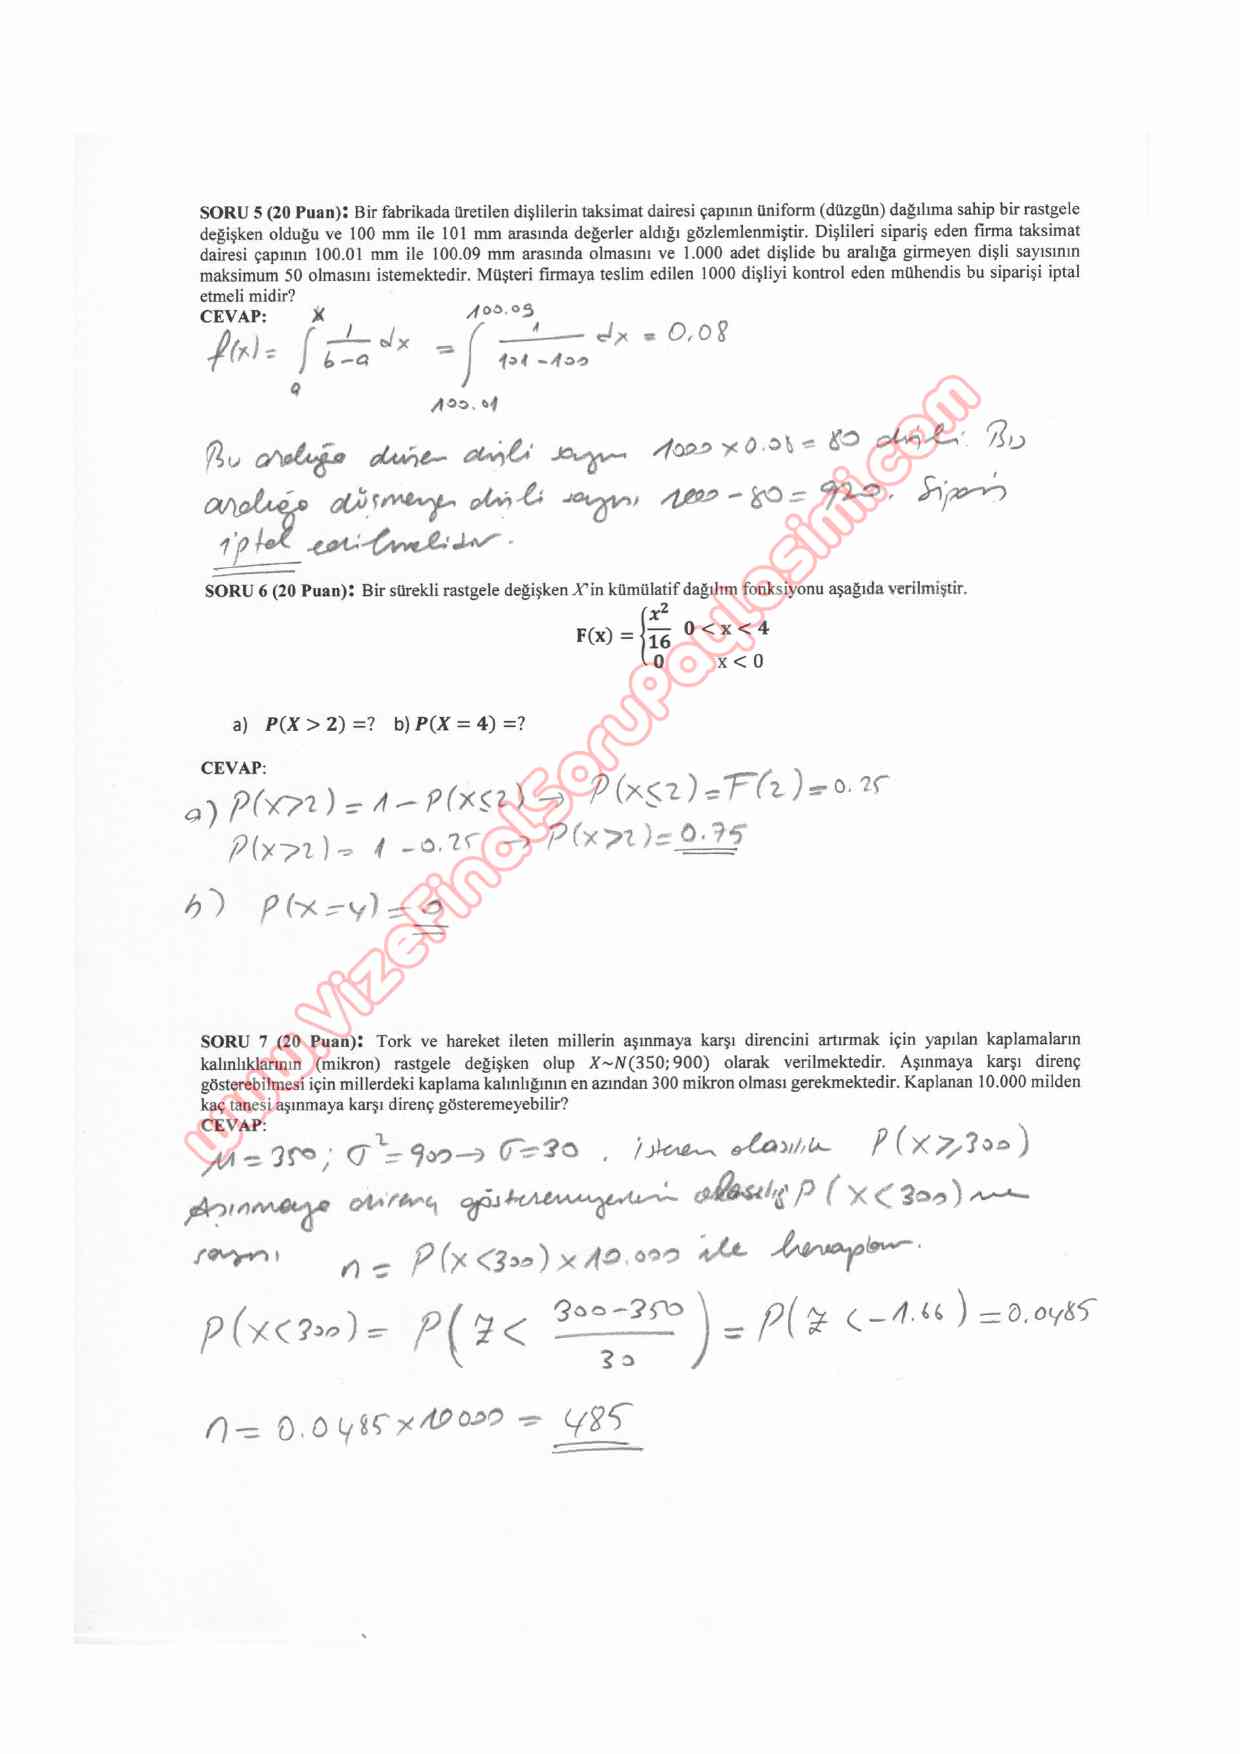 SORU 5 (20 Puan): Bir fabrikada üretilen dişlilerin taksimat dairesi çapının üniform (düzgün) dağılıma sahip bir rastgele
değişken olduğu ve 100 mm ile 101 mm arasında değerler aldığı gözlemlenmiştir. Dişlileri sipariş eden firma taksimat
dairesi çapının 100.01 mm ile 100.09 mm arasında olmasını ve 1.000 adet dişlide bu aralığa girmeyen dişli sayısının
maksimum 50 olmasını istemektedir. Müşteri firmaya teslim edilen 1000 dişliyi kontrol eden mühendis bu siparişi iptal
etmeli midir?
CEVAP:
f(x) = ∫_a^x 1/(b-a) dx = ∫_100.01^100.09 1/(101-100) dx = 0.08
Bu aralığa düşen dişli sayısı 1000 x 0.08 = 80 dişli. Bu
aralığa düşmeyen dişli sayısı 1000 - 80 = 920. Sipariş
iptal edilmelidir.
SORU 6 (20 Puan): Bir sürekli rastgele değişken X'in kümülatif dağılım fonksiyonu aşağıda verilmiştir.
F(x) = { x²/16 0 < x < 4
0 x < 0
a) P(X > 2) =? b) P(X = 4) =?
CEVAP:
a) P(X>2) = 1 - P(X≤2) → P(X≤2) = F(2) = 0.25
P(X>2) = 1 - 0.25 → P(X>2) = 0.75
b) P(X=4) = 0
SORU 7 (20 Puan): Tork ve hareket ileten millerin aşınmaya karşı direncini artırmak için yapılan kaplamaların
kalınlıklarının (mikron) rastgele değişken olup X~N(350; 900) olarak verilmektedir. Aşınmaya karşı direnç
gösterebilmesi için millerdeki kaplama kalınlığının en azından 300 mikron olması gerekmektedir. Kaplanan 10.000 milden
kaç tanesi aşınmaya karşı direnç gösteremeyebilir?
CEVAP:
μ = 350; σ² = 900 → σ = 30. istenen olasılık P(X ≥ 300)
Aşınmaya direnç gösteremeyenlerin olasılığı P(X < 300) ve
sayısı n = P(X < 300) x 10.000 ile hesaplanır.
P(X < 300) = P(Z < (300-350)/30) = P(Z < -1.66) = 0.0485
n = 0.0485 x 10000 = 485
www.VizeFinalSoruPaylasimi.com